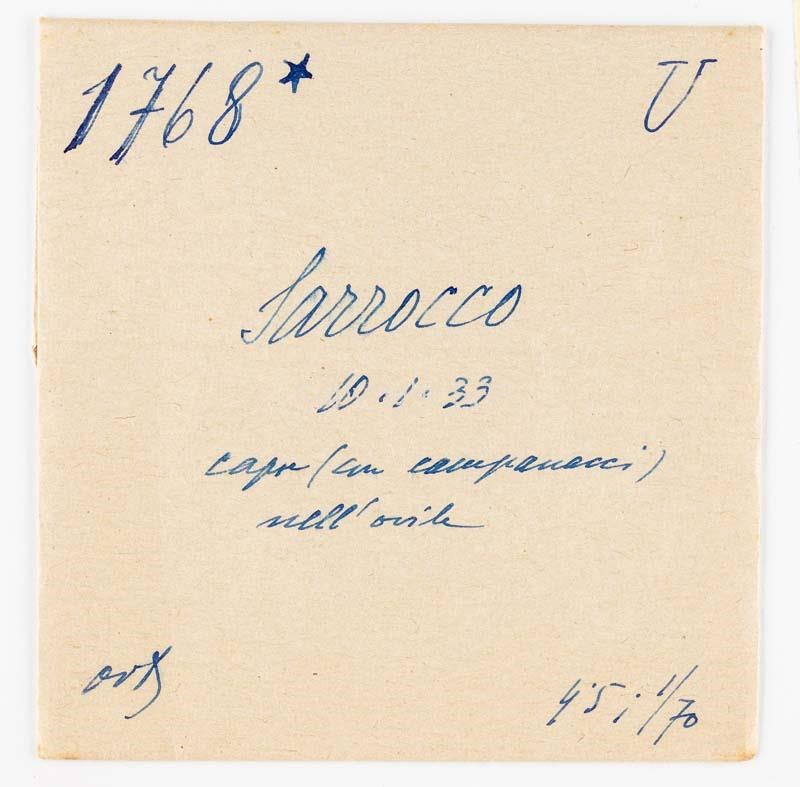 1768* U
Sarrocco
10.1.33
capre (con campanacci)
nell'ovile
4·5; 1/70